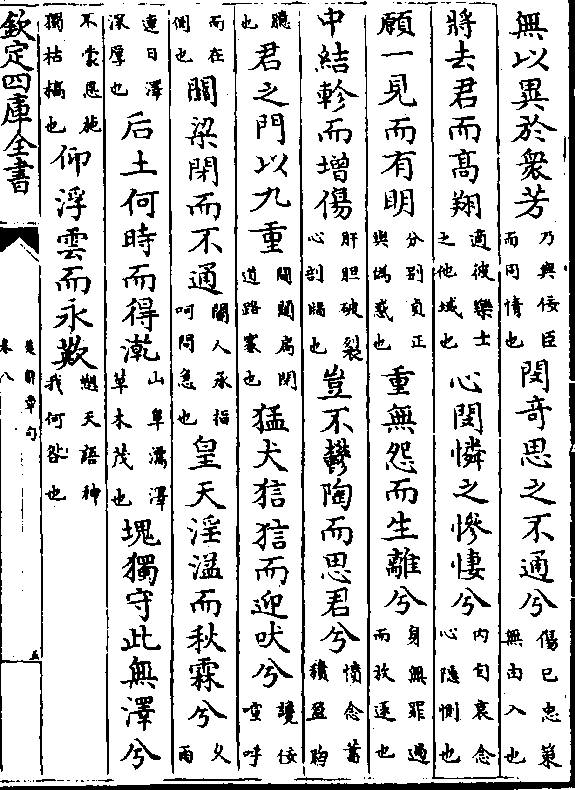 無以異於衆芳乃與佞臣而同情也閔竒思之不通兮傷己忠策無由入也
將去君而髙翔適彼樂土之他域也心閔憐之慘悽兮内自哀念心隱惻也
願一見而有明分别貞正與偽惑也重無怨而生離兮身無罪過而放逐也
中結軫而增傷肝胆破裂心剖䐧也豈不鬱陶而思君兮憤念蓄積盈胸
臆也君之門以九重閽闥扃閉道路塞也猛犬狺狺而迎吠兮讒佞諠呼
而在側也關梁閉而不通閽人承指呵問急也皇天淫溢而秋霖兮久雨
連日澤深厚也后土何時而得漧山阜濡澤草木茂也塊獨守此無澤兮
不蒙恩施獨枯槁也仰浮雲而永歎愬天語神我何咎也
欽定四庫全書
楚辭章句
卷八
五